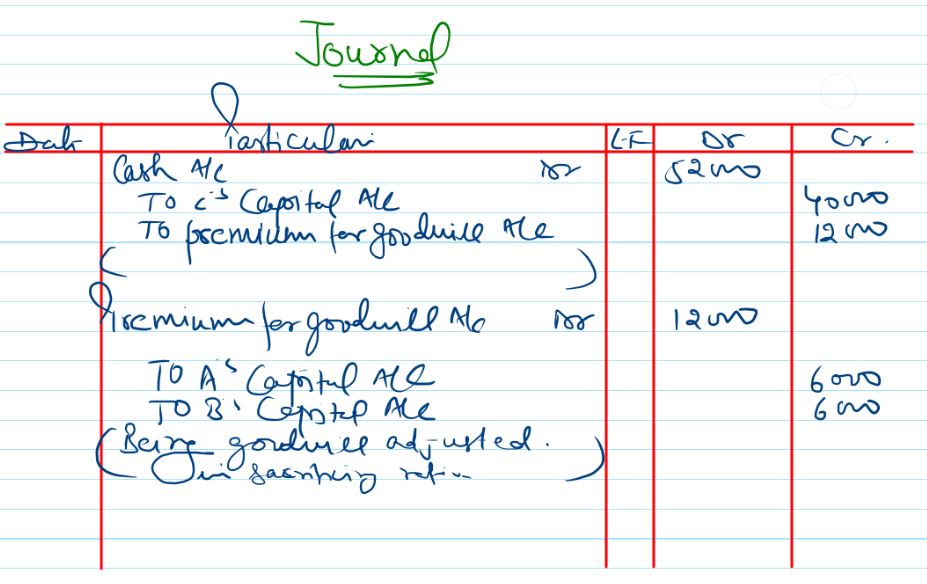 Journal
Date Particulars L.F Dr Cr.
Cash A/c Dr 52000
To C's Capital A/c 40000
To premium for goodwill A/c 12000
( )
Premium for goodwill A/c Dr 12000
To A's Capital A/c 6000
To B's Capital A/c 6000
(Being goodwill adjusted.
in sacrificing ratio )